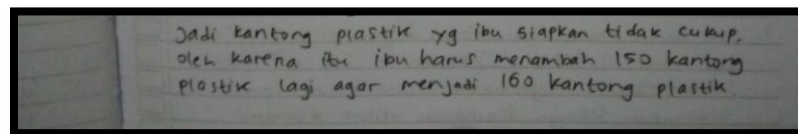 Jadi kantong plastik yg ibu siapkan tidak cukup,
oleh karena itu ibu harus menambah 150 kantong
plastik lagi agar menjadi 160 kantong plastik.